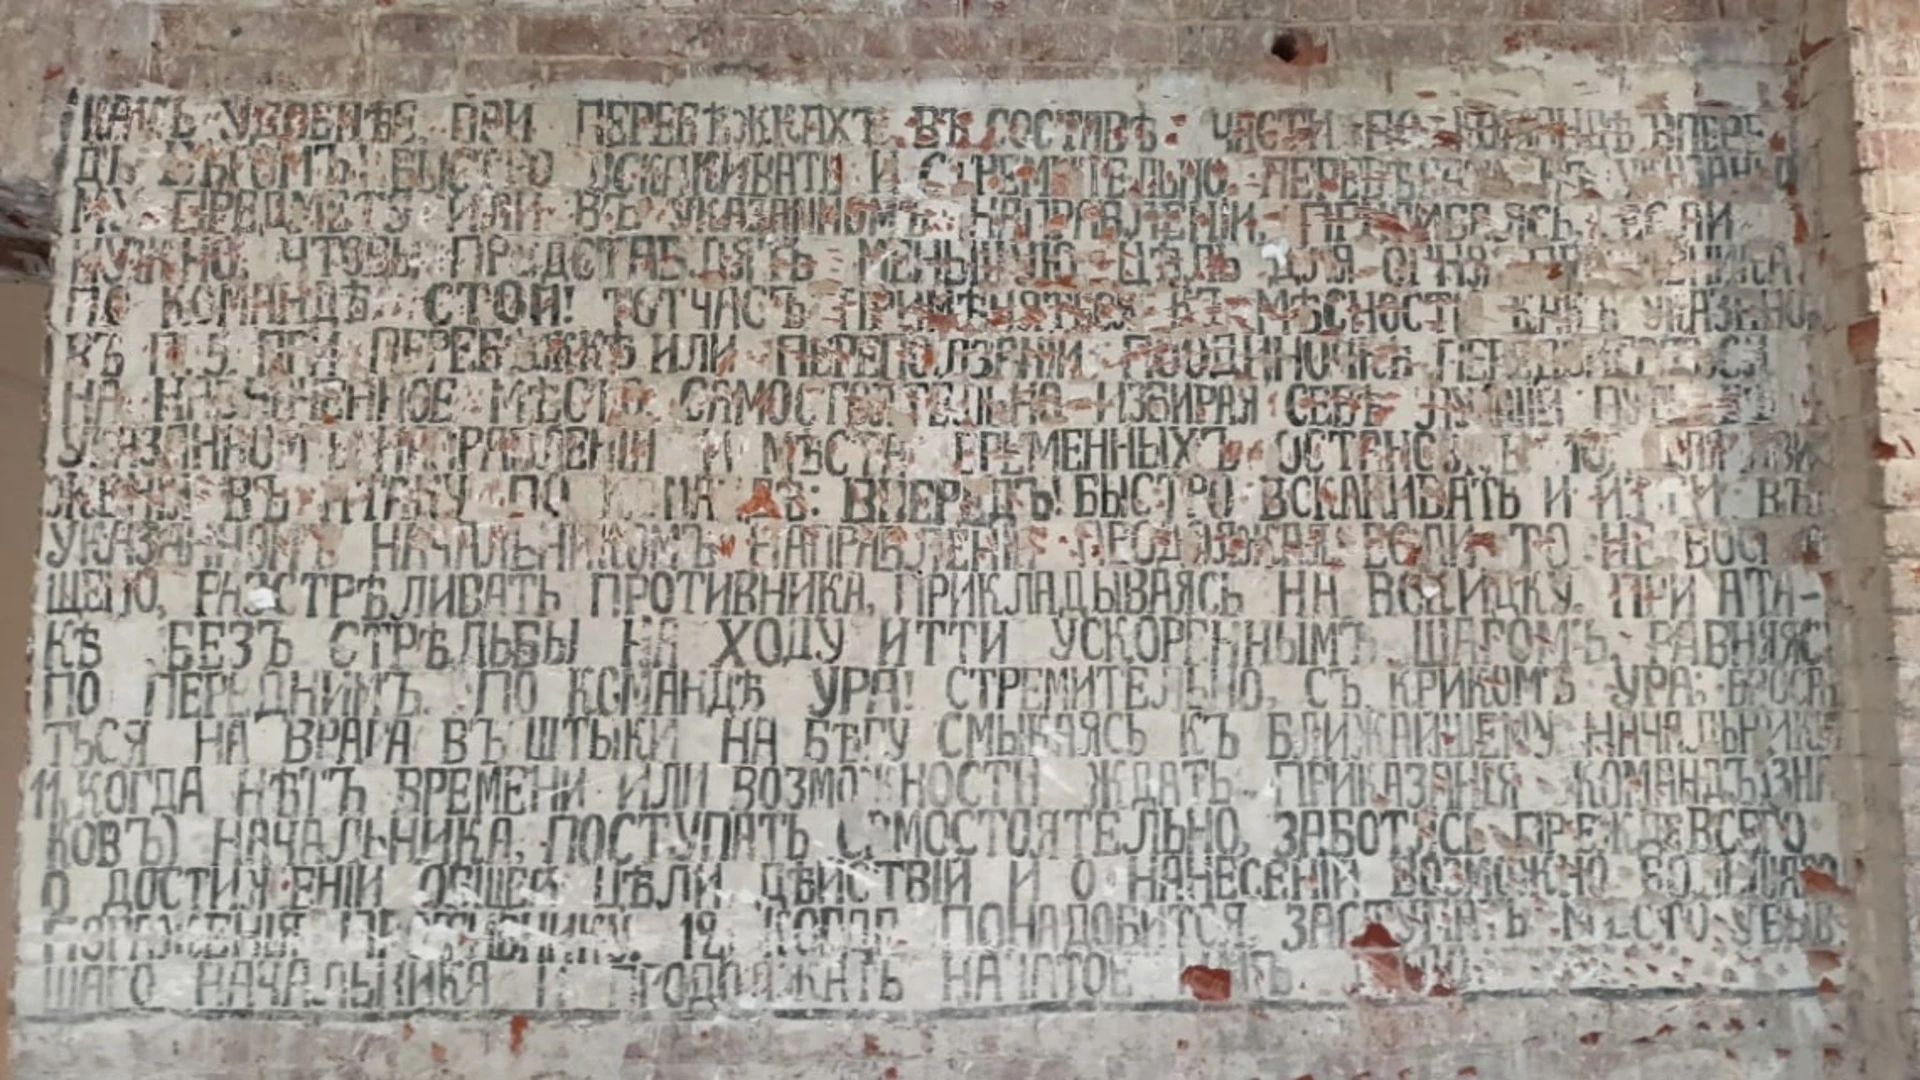 КАКЪ УДОБНѢЕ. ПРИ ПЕРЕБѢЖКАХЪ ВЪ СОСТАВѢ ЧАСТИ ПО КОМАНДѢ ВПЕРЕ
ДЪ БѢГОМЪ! БЫСТРО ВСКАКИВАТЬ И СТРЕМИТЕЛЬНО ПЕРЕБѢГАТЬ КЪ УКАЗАННО
МУ ПРЕДМЕТУ ИЛИ ВЪ УКАЗАННОМЪ НАПРАВЛЕНІИ, ПРИГИБАЯСЬ, ЕСЛИ
НУЖНО, ЧТОБЫ ПРЕДСТАВЛЯТЬ МЕНЬШУЮ ЦѢЛЬ ДЛЯ ОГНЯ ПРОТИВНИКА.
ПО КОМАНДѢ: СТОЙ! ТОТЧАСЪ ПРИМѢНЯТЬСЯ КЪ МѢСНОСТИ КАКЪ УКАЗАНО
ВЪ П. 5. ПРИ ПЕРЕБѢЖКѢ ИЛИ ПЕРЕПОЛЗАНІИ ПООДИНОЧКѢ
НА НАЗНАЧЕННОЕ МѢСТО САМОСТОЯТЕЛЬНО ИЗБИРАЯ СЕБѢ ЛУЧШІЙ ПУТЬ ВЪ
УКАЗАННОМЪ НАПРАВЛЕНІИ И МѢСТА ВРЕМЕННЫХЪ ОСТАНОВОКЪ 10, ПРИ ДВИ
ЖЕНІИ ВЪ АТАКУ ПО КОМАНДѢ: ВПЕРЕДЪ! БЫСТРО ВСКАКИВАТЬ И ИТТИ ВЪ
УКАЗАННОМЪ НАЧАЛЬНИКОМЪ НАПРАВЛЕНІИ ПРОДОЛЖАЯ ЕСЛИ ТО НЕ ВОСПРЕ
ЩЕНО, РАЗСТРѢЛИВАТЬ ПРОТИВНИКА, ПРИКЛАДЫВАЯСЬ НА ПРИ АТА-
КѢ БЕЗЪ СТРѢЛЬБЫ НА ХОДУ ИТТИ УСКОРЕННЫМЪ ШАГОМЪ РАВНЯЯС
ПО ПЕРЕДНИМЪ. ПО КОМАНДѢ УРА! СТРЕМИТЕЛЬНО, СЪ КРИКОМЪ УРА; БРОСА
ТЬСЯ НА ВРАГА ВЪ ШТЫКИ НА БѢГУ СМЫКАЯСЬ КЪ БЛИЖАЙШЕМУ НАЧАЛЬНИКУ
11, КОГДА НѢТЪ ВРЕМЕНИ ИЛИ ВОЗМОЖНОСТИ ЖДАТЬ ПРИКАЗАНІЯ КОМАНДЪ(ЗНА
КОВЪ) НАЧАЛЬНИКА, ПОСТУПАТЬ САМОСТОЯТЕЛЬНО, ЗАБОТЯСЬ ПРЕЖДЕ ВСЕГО
О ДОСТИЖЕНІИ ОБЩЕЙ ЦѢЛИ ДѢЙСТВІЙ И О НАНЕСЕНІИ ВОЗМОЖНО БОЛЬШАГО
ПОРАЖЕНІЯ ПРОТИВНИКУ. 12, КОГДА ПОНАДОБИТСЯ ЗАСТУПАТЬ МѢСТО УБЫВ
ШАГО НАЧАЛЬНИКА И ПРОДОЛЖАТЬ НАЧАТОЕ